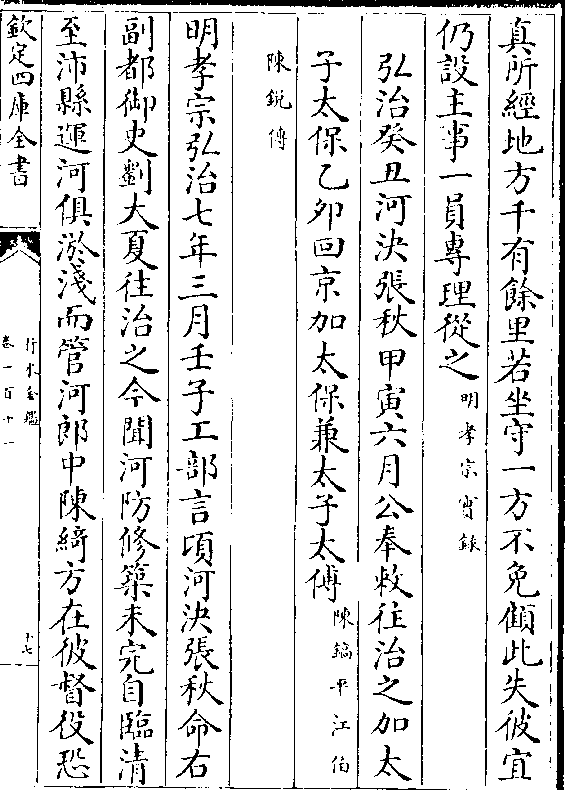 真所經地方千有餘里若坐守一方不免顧此失彼宜
仍設主事一員專理從之明孝宗實錄
弘治癸丑河決張秋甲寅六月公奉敕往治之加太
子太保乙夘回京加太保兼太子太傅陳鎬平江伯
陳銳傳
明孝宗弘治七年三月壬子工部言頃河決張秋命右
副都御史劉大夏往治之今聞河防修築未完自臨清
至沛縣運河俱淤淺而管河郎中陳綺方在彼督役恐
欽定四庫全書
行水金鑑
卷一百十一
十七